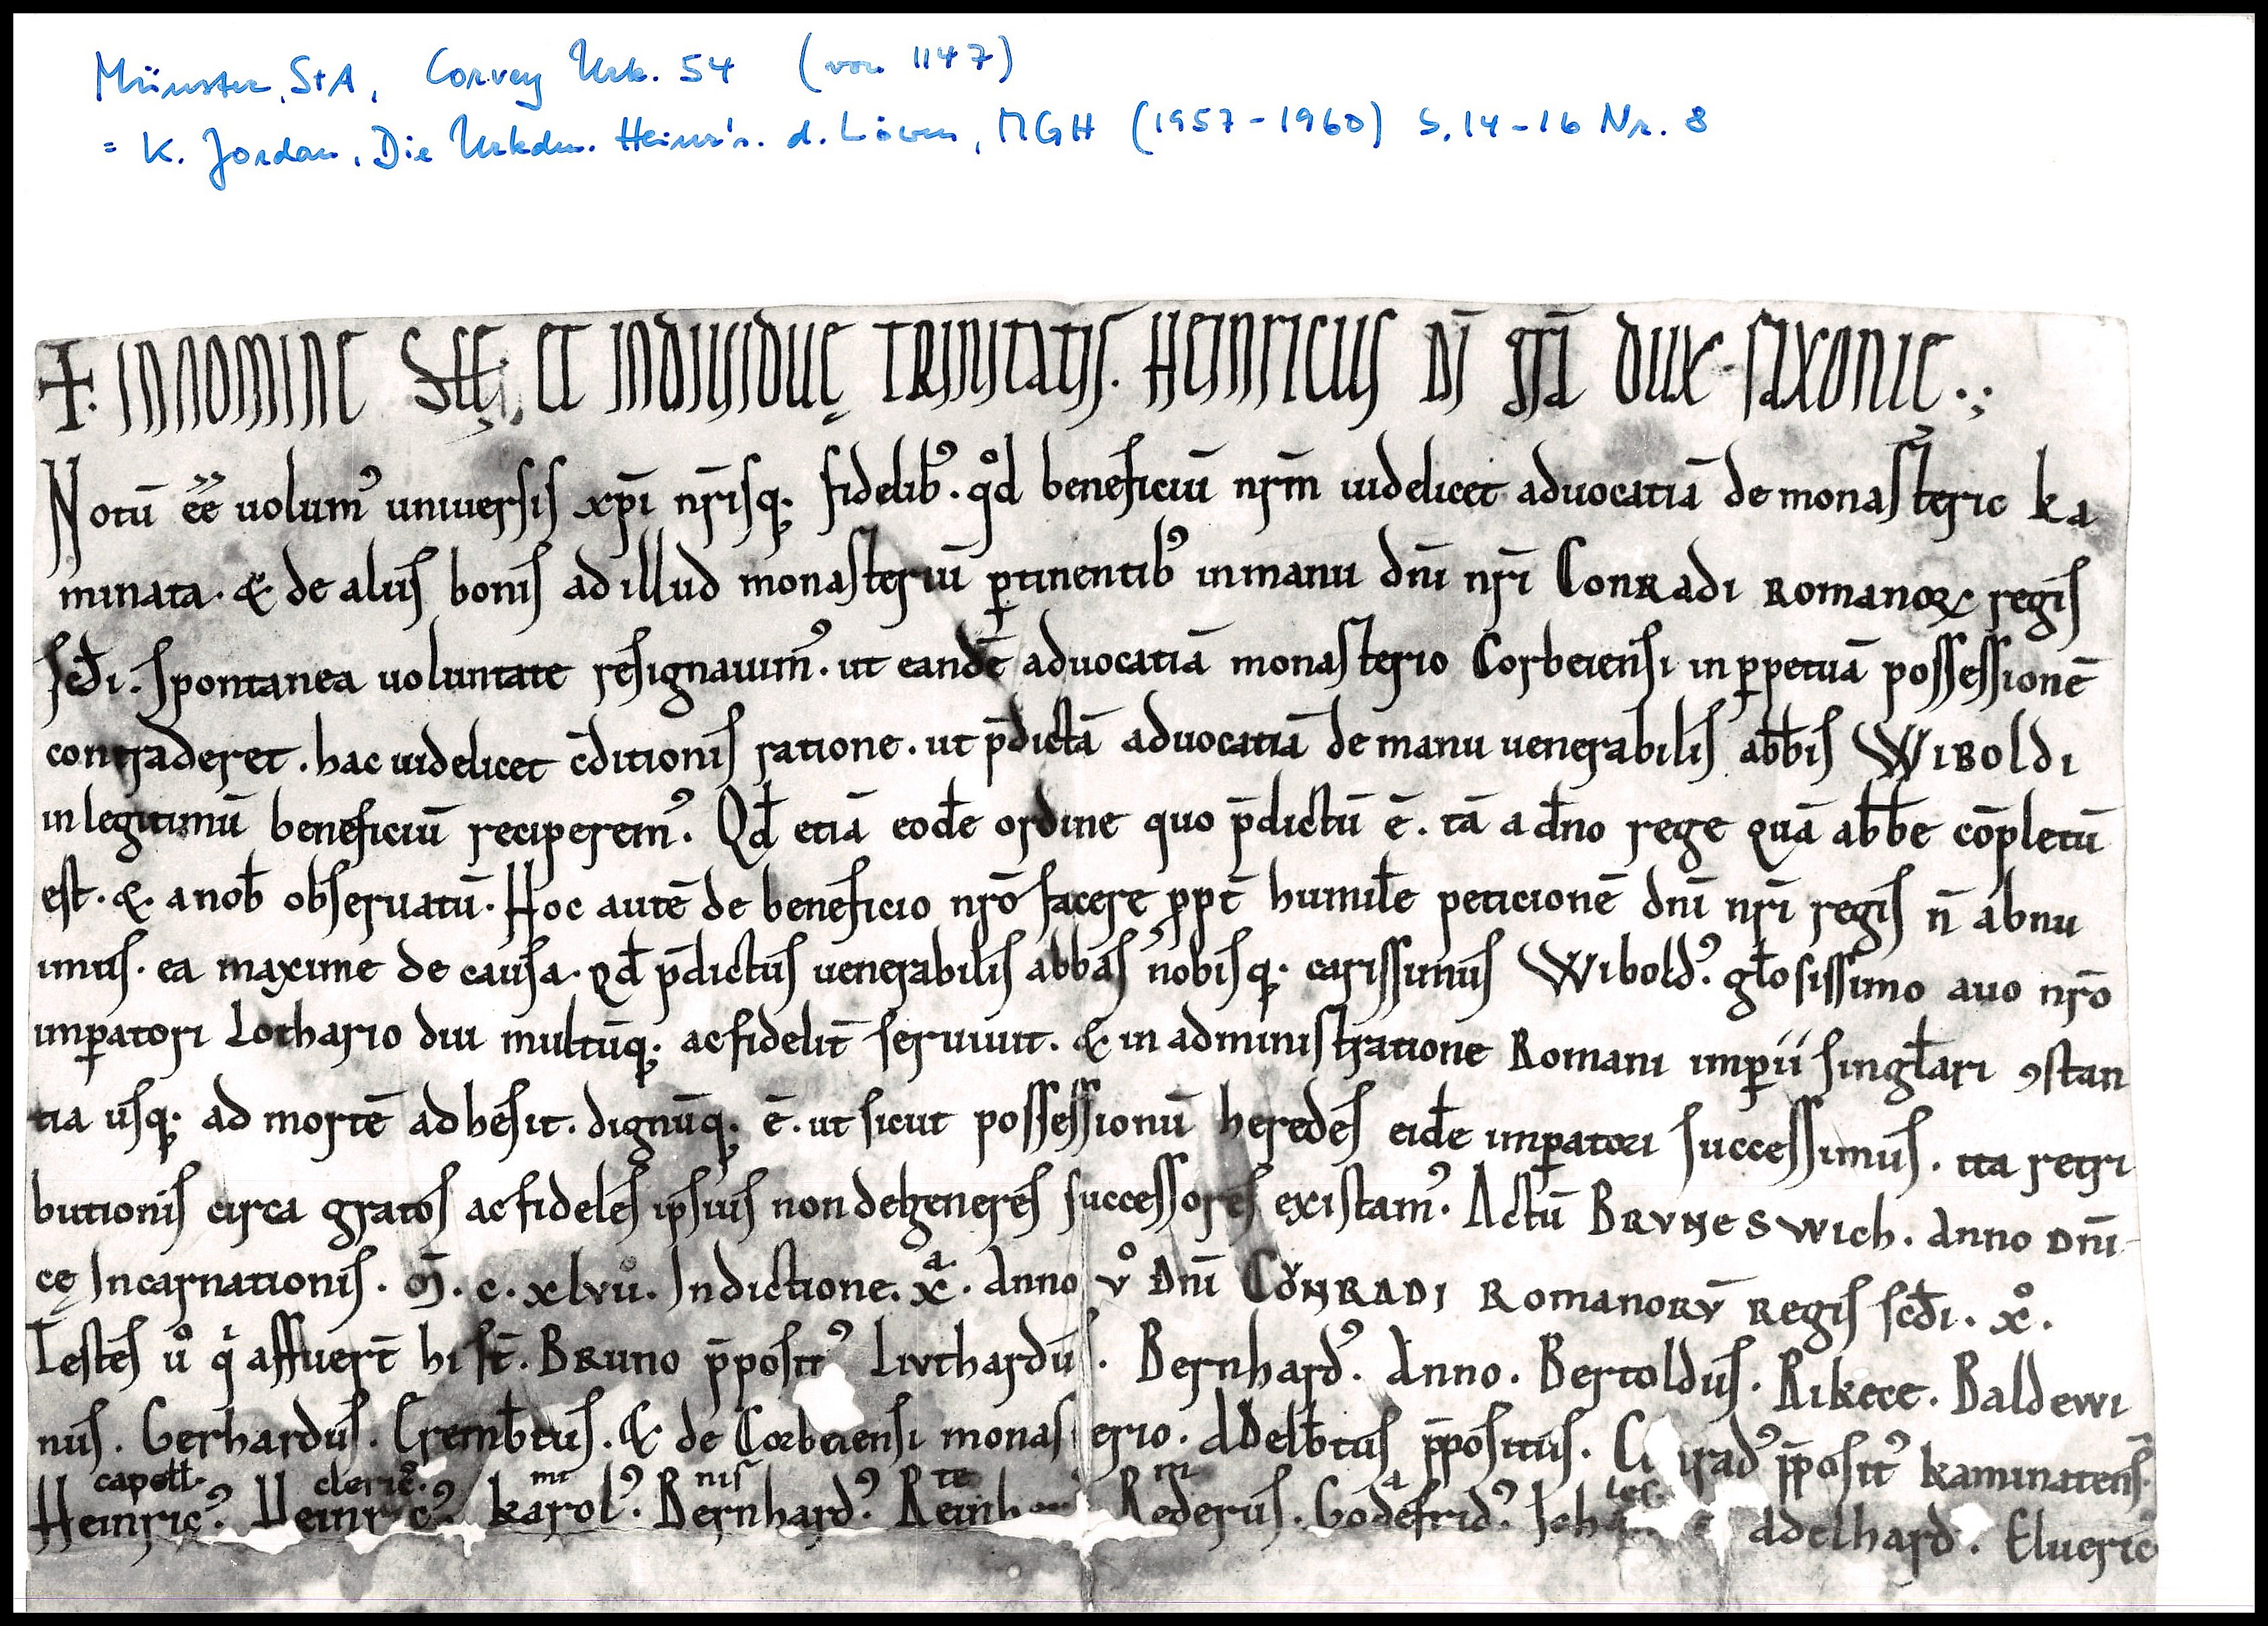 Münster, StA, Corvey Urk. 54 (vor 1147)
= K. Jordan, Die Urkdn. Heinr's. d. Löwen, MGH (1957-1960) S. 14-16 Nr. 8
✝. IN NOMINE SCĘ ET INDIVIDUĘ TRINITATIS. HEINRICUS DĪ GRĀ DUX SAXONIE.
Notū ēē uolumꝰ uniuersis xp̄i nr̄isq; fidelibꝰ. qd̊ beneficiū nr̄m uidelicet aduocatiā de monasterio ka
minata. & de aliis bonis ad illud monasteriū ꝑtinentibꝰ in manu dn̄i nr̄i Conradi Romanoꝝ regis
scd̄i. spontanea uoluntate resignauimꝰ. ut eandē aduocatiā monasterio Corbeiensi in ꝑpetuā possessionē
contraderet. hac uidelicet c̄ditionis ratione. ut p̄dictā aduocatiā de manu uenerabilis abb̄is Wiboldi
in legitimū beneficiū reciperemꝰ. Qd̄ etiā eodē ordine quo p̄dictū ē. tā a dn̄o rege quā abb̄e cōpletū
est. & a nob̄ obseruatū. Hoc autē de beneficio nr̄o facere ꝓpt̄ humilē peticionē dn̄i nr̄i regis n̄ abnu
imus. ea maxime de causa. qd̄ p̄dictus uenerabilis abbas nobisq; carissimus Wiboldꝰ. gl̄osissimo auo nr̄o
imꝑatori Lothario diu multūq; ac fidelit̄ seruiuit. & in administratione Romani imꝑii singl̄ari ꝯstan
tia usq; ad mortē adhesit. dignūq; ē. ut sicut possessionū heredes eidē imꝑatori successimus. ita retri
butionis circa gratos ac fideles ipsius non degeneres successores existamꝰ. Actū BRUNESWICH. Anno Dn̄i
cę Incarnationis. M̄. c. xlvii. Indictione. xᵃ. Anno vº Dn̄i CONRADI ROMANORV̄ Regis scd̄i. xº.
Testes uº qⁱ affuer̄t hi st̄. Bruno p̄positꝰ Livthardus. Bernhardꝰ. Anno. Bertoldus. Rikece. Baldewi
nus. Gerhardus. Eremb̄tus. & de Corbeiensi monasterio. Adelb̄tus p̄positus. Conradꝰ p̄positꝰ kaminatens̄.
capell. cleric̄. nis te
Heinricꝰ. Heinricꝰ. karolꝰ. Bernhardꝰ. Rederus. Godefridꝰ. Adelhard. Elueric̄